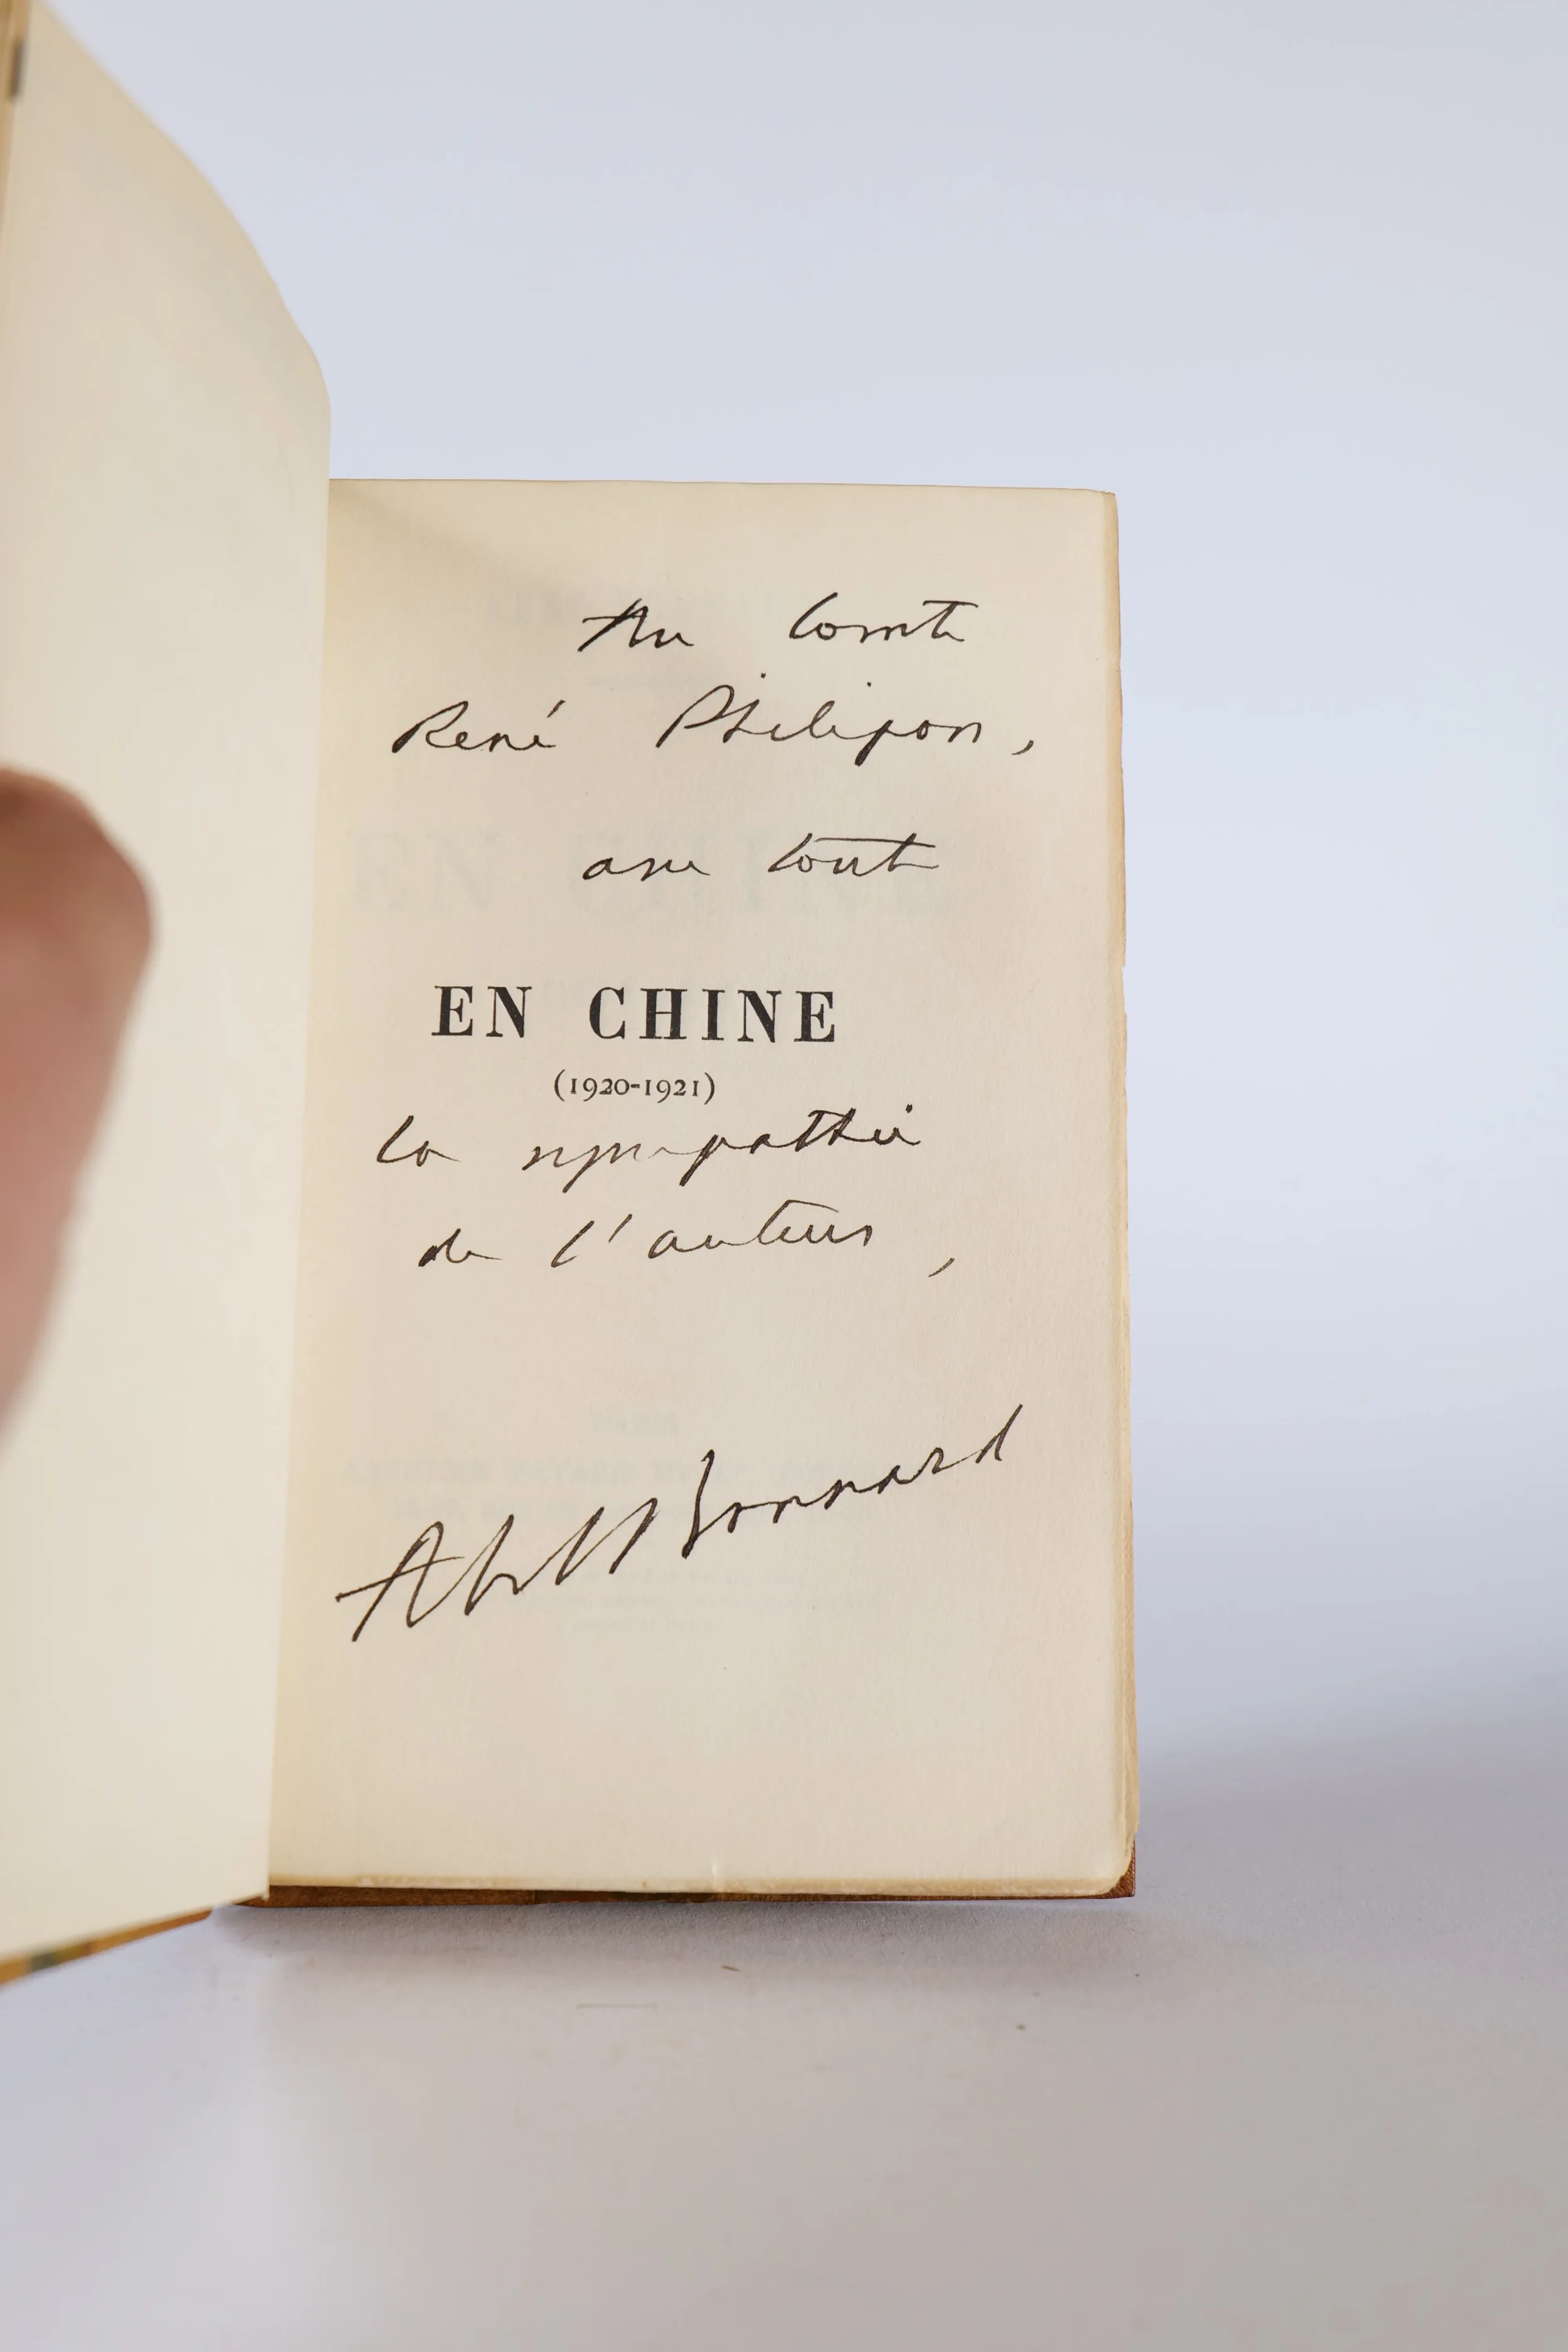 Au Comte
René Philipon,
avec tout
EN CHINE
(1920-1921)
la sympathie
de l'auteur,
Abel Bonnard